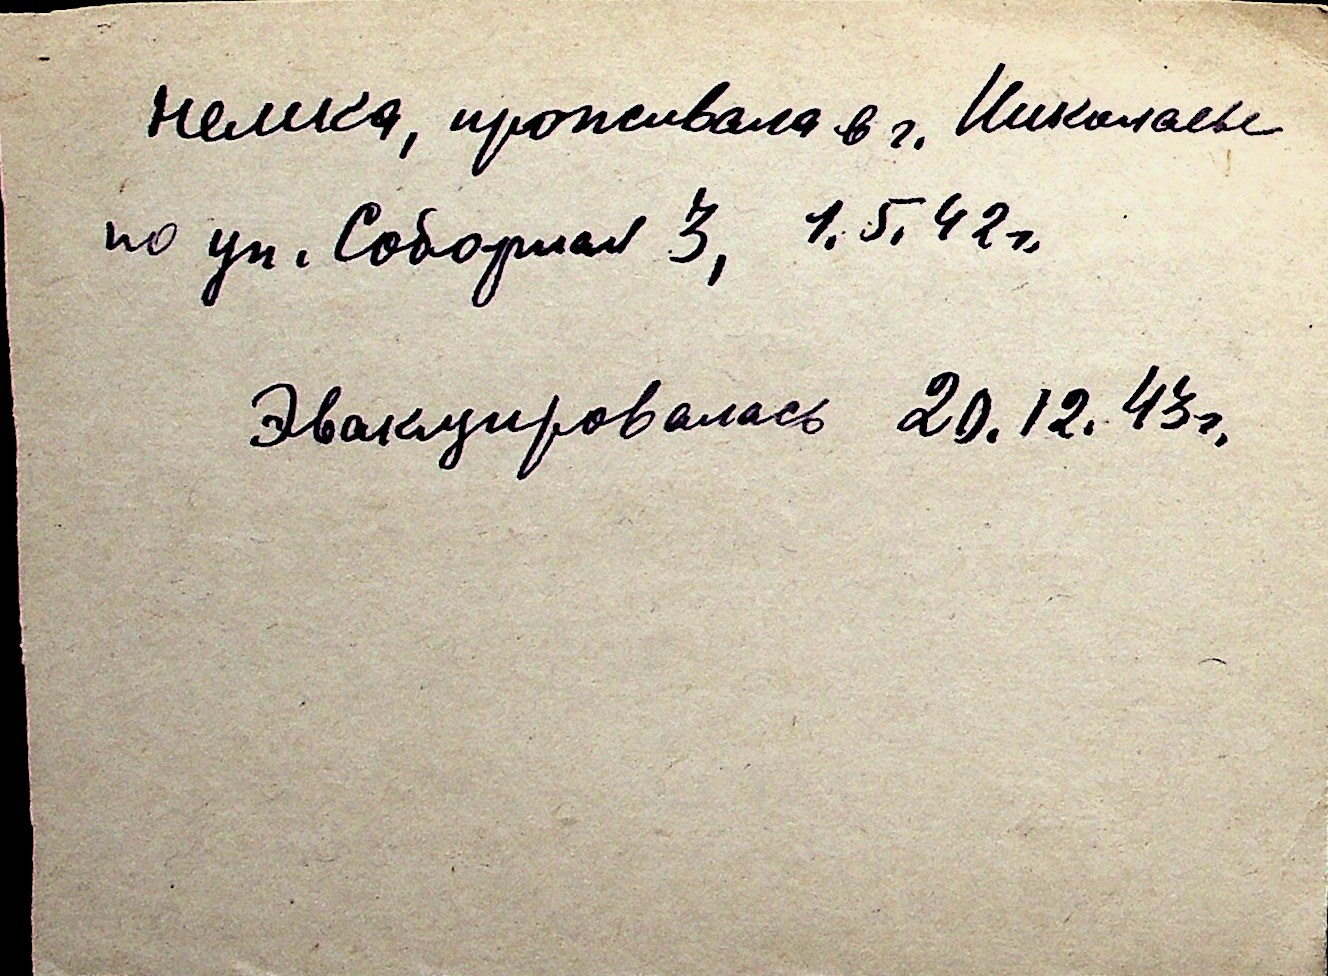 немка, проживала в г. Николаеве
по ул. Соборная 3, 1.5.42г.
Эвакуировалась 20.12.43г.